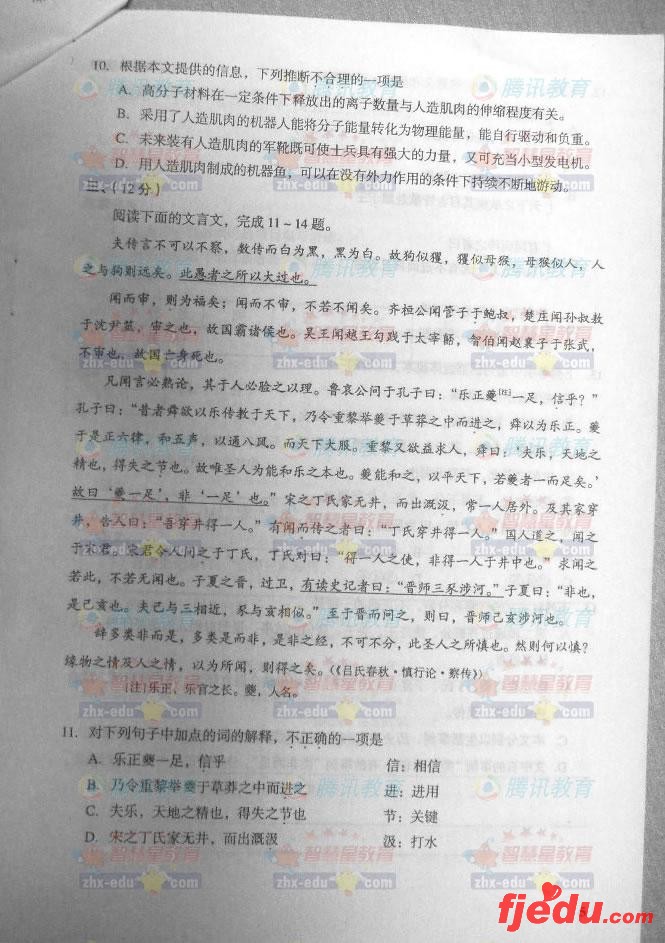 10. 根据本文提供的信息，下列推断不合理的一项是
A. 高分子材料在一定条件下释放出的离子数量与人造肌肉的伸缩程度有关。
B. 采用了人造肌肉的机器人能将分子能量转化为物理能量，能自行驱动和负重。
C. 未来装有人造肌肉的军靴既可使士兵具有强大的力量，又可充当小型发电机。
D. 用人造肌肉制成的机器鱼，可以在没有外力作用的条件下持续不断地游动。
三、（12分）
阅读下面的文言文，完成11～14题。
夫传言不可以不察，数传而白为黑，黑为白。故狗似玃，玃似母猴，母猴似人，人
之与狗则远矣。此愚者之所以大过也。
闻而审，则为福矣；闻而不审，不若不闻矣。齐桓公闻管子于鲍叔，楚庄闻孙叔敖
于沈尹筮，审之也，故国霸诸侯也。吴王闻越王勾践于太宰嚭，智伯闻赵襄子于张武，
不审也，故国亡身死也。
凡闻言必熟论，其于人必验之以理。鲁哀公问于孔子曰：“乐正夔[注]一足，信乎？”
孔子曰：“昔者舜欲以乐传教于天下，乃令重黎举夔于草莽之中而进之，舜以为乐正。夔
于是正六律，和五声，以通八风。而天下大服。重黎又欲益求人，舜曰：‘夫乐，天地之
精也，得失之节也。故唯圣人为能和乐之本也。夔能和之，以平天下，若夔者一而足矣。’
故曰‘夔一足’，非‘一足’也。”宋之丁氏家无井，而出溉汲，常一人居外。及其家穿
井，告人曰：“吾穿井得一人。”有闻而传之者曰：“丁氏穿井得一人。”国人道之，闻之
于宋君。宋君令人问之于丁氏，丁氏对曰：“得一人之使，非得一人于井中也。”求闻之
若此，不若无闻也。子夏之晋，过卫，有读史记者曰：“晋师三豕涉河。”子夏曰：“非也，
是己亥也。夫己与三相近，豕与亥相似。”至于晋而问之，则曰，晋师己亥涉河也。
辞多类非而是，多类是而非，是非之经，不可不分，此圣人之所慎也。然则何以慎？
缘物之情及人之情，以为所闻，则得之矣。（《吕氏春秋·慎行论·察传》）
[注]乐正，乐官之长。夔，人名。
11. 对下列句子中加点的词的解释，不正确的一项是
A. 乐正夔一足，信乎 信：相信
B. 乃令重黎举夔于草莽之中而进之 进：进用
C. 夫乐，天地之精也，得失之节也 节：关键
D. 宋之丁氏家无井，而出溉汲 汲：打水
腾讯教育
智慧星教育
zhx-edu.com
fjedu.com